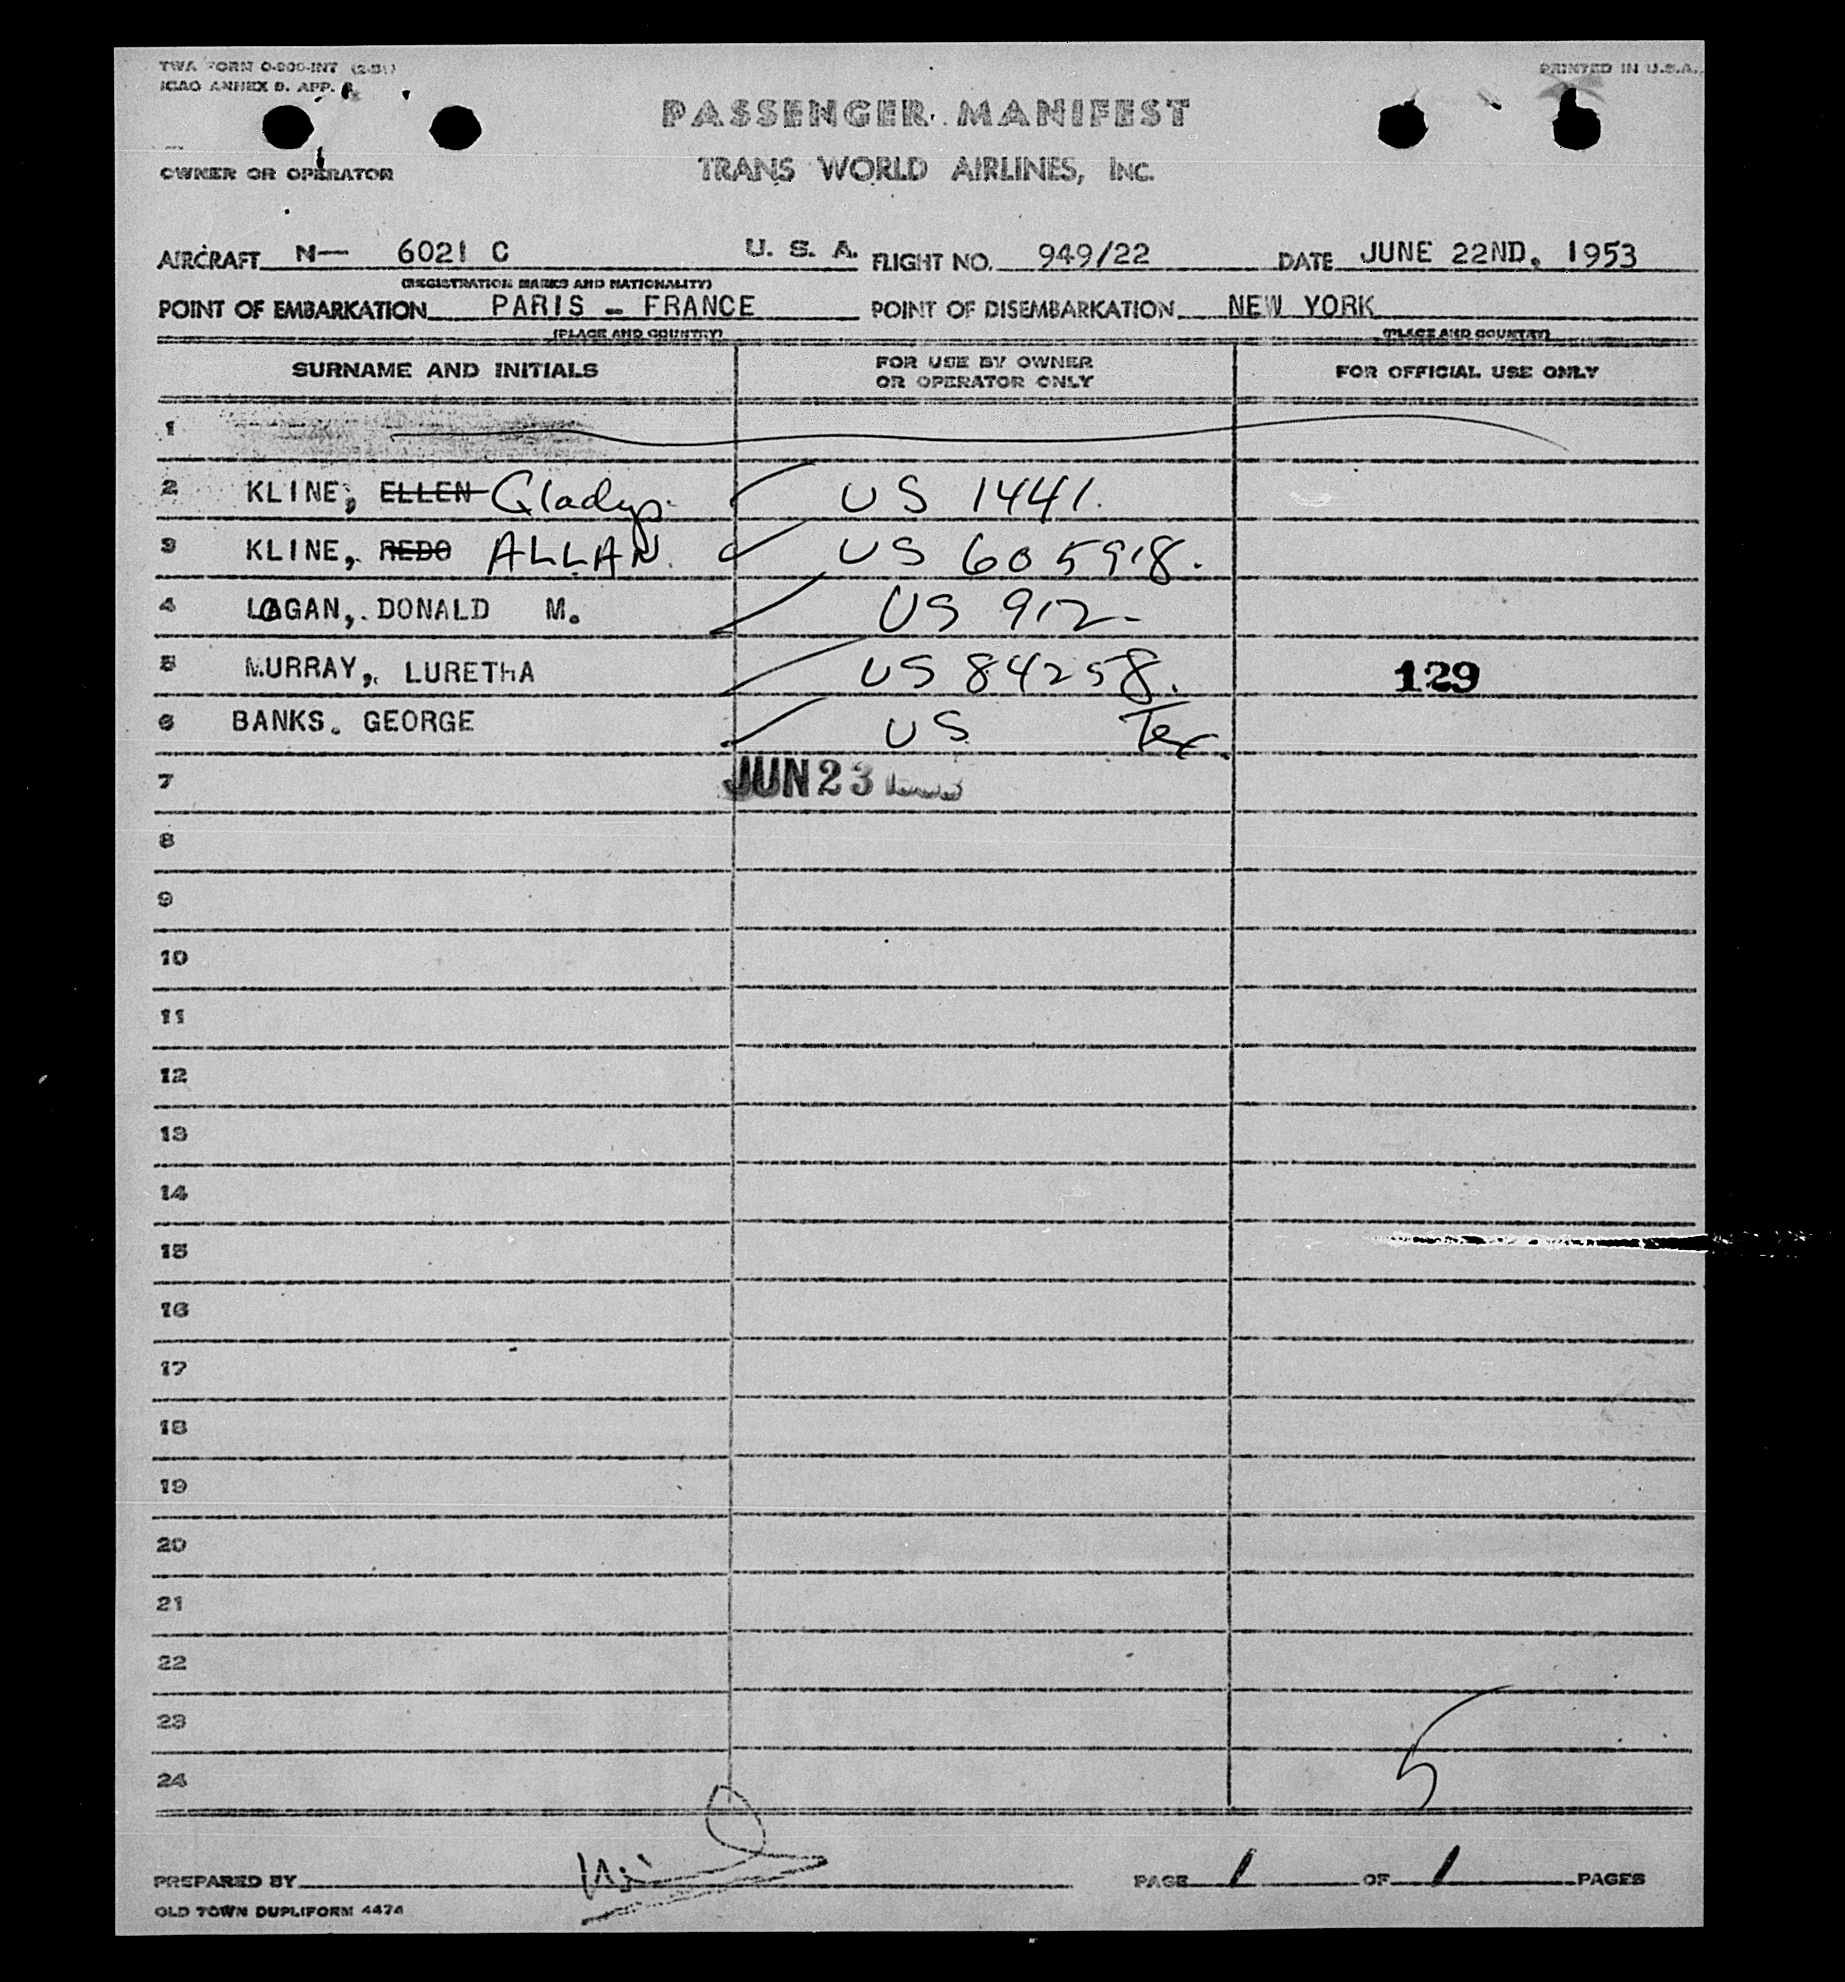 TWA FORM O-900-INT (2-51)
ICAO ANNEX 9. APP.
PRINTED IN U.S.A.
PASSENGER MANIFEST
TRANS WORLD AIRLINES, INC.
OWNER OR OPERATOR
AIRCRAFT N— 6021 C U. S. A. FLIGHT NO. 949/22 DATE JUNE 22ND. 1953
(REGISTRATION MARKS AND NATIONALITY)
POINT OF EMBARKATION PARIS - FRANCE POINT OF DISEMBARKATION NEW YORK
(PLACE AND COUNTRY) (PLACE AND COUNTRY)
SURNAME AND INITIALS FOR USE BY OWNER OR OPERATOR ONLY FOR OFFICIAL USE ONLY
1
2 KLINE, ELLEN Gladys. US 1441.
3 KLINE, REDO ALLAN. US 605918.
4 LOGAN, DONALD M. US 912-
5 MURRAY, LURETHA US 84258. 129
6 BANKS. GEORGE US Tex.
7 JUN 23
8
9
10
11
12
13
14
15
16
17
18
19
20
21
22
23
24 5
PREPARED BY PAGE 1 OF 1 PAGES
OLD TOWN DUPLIFORM 4474